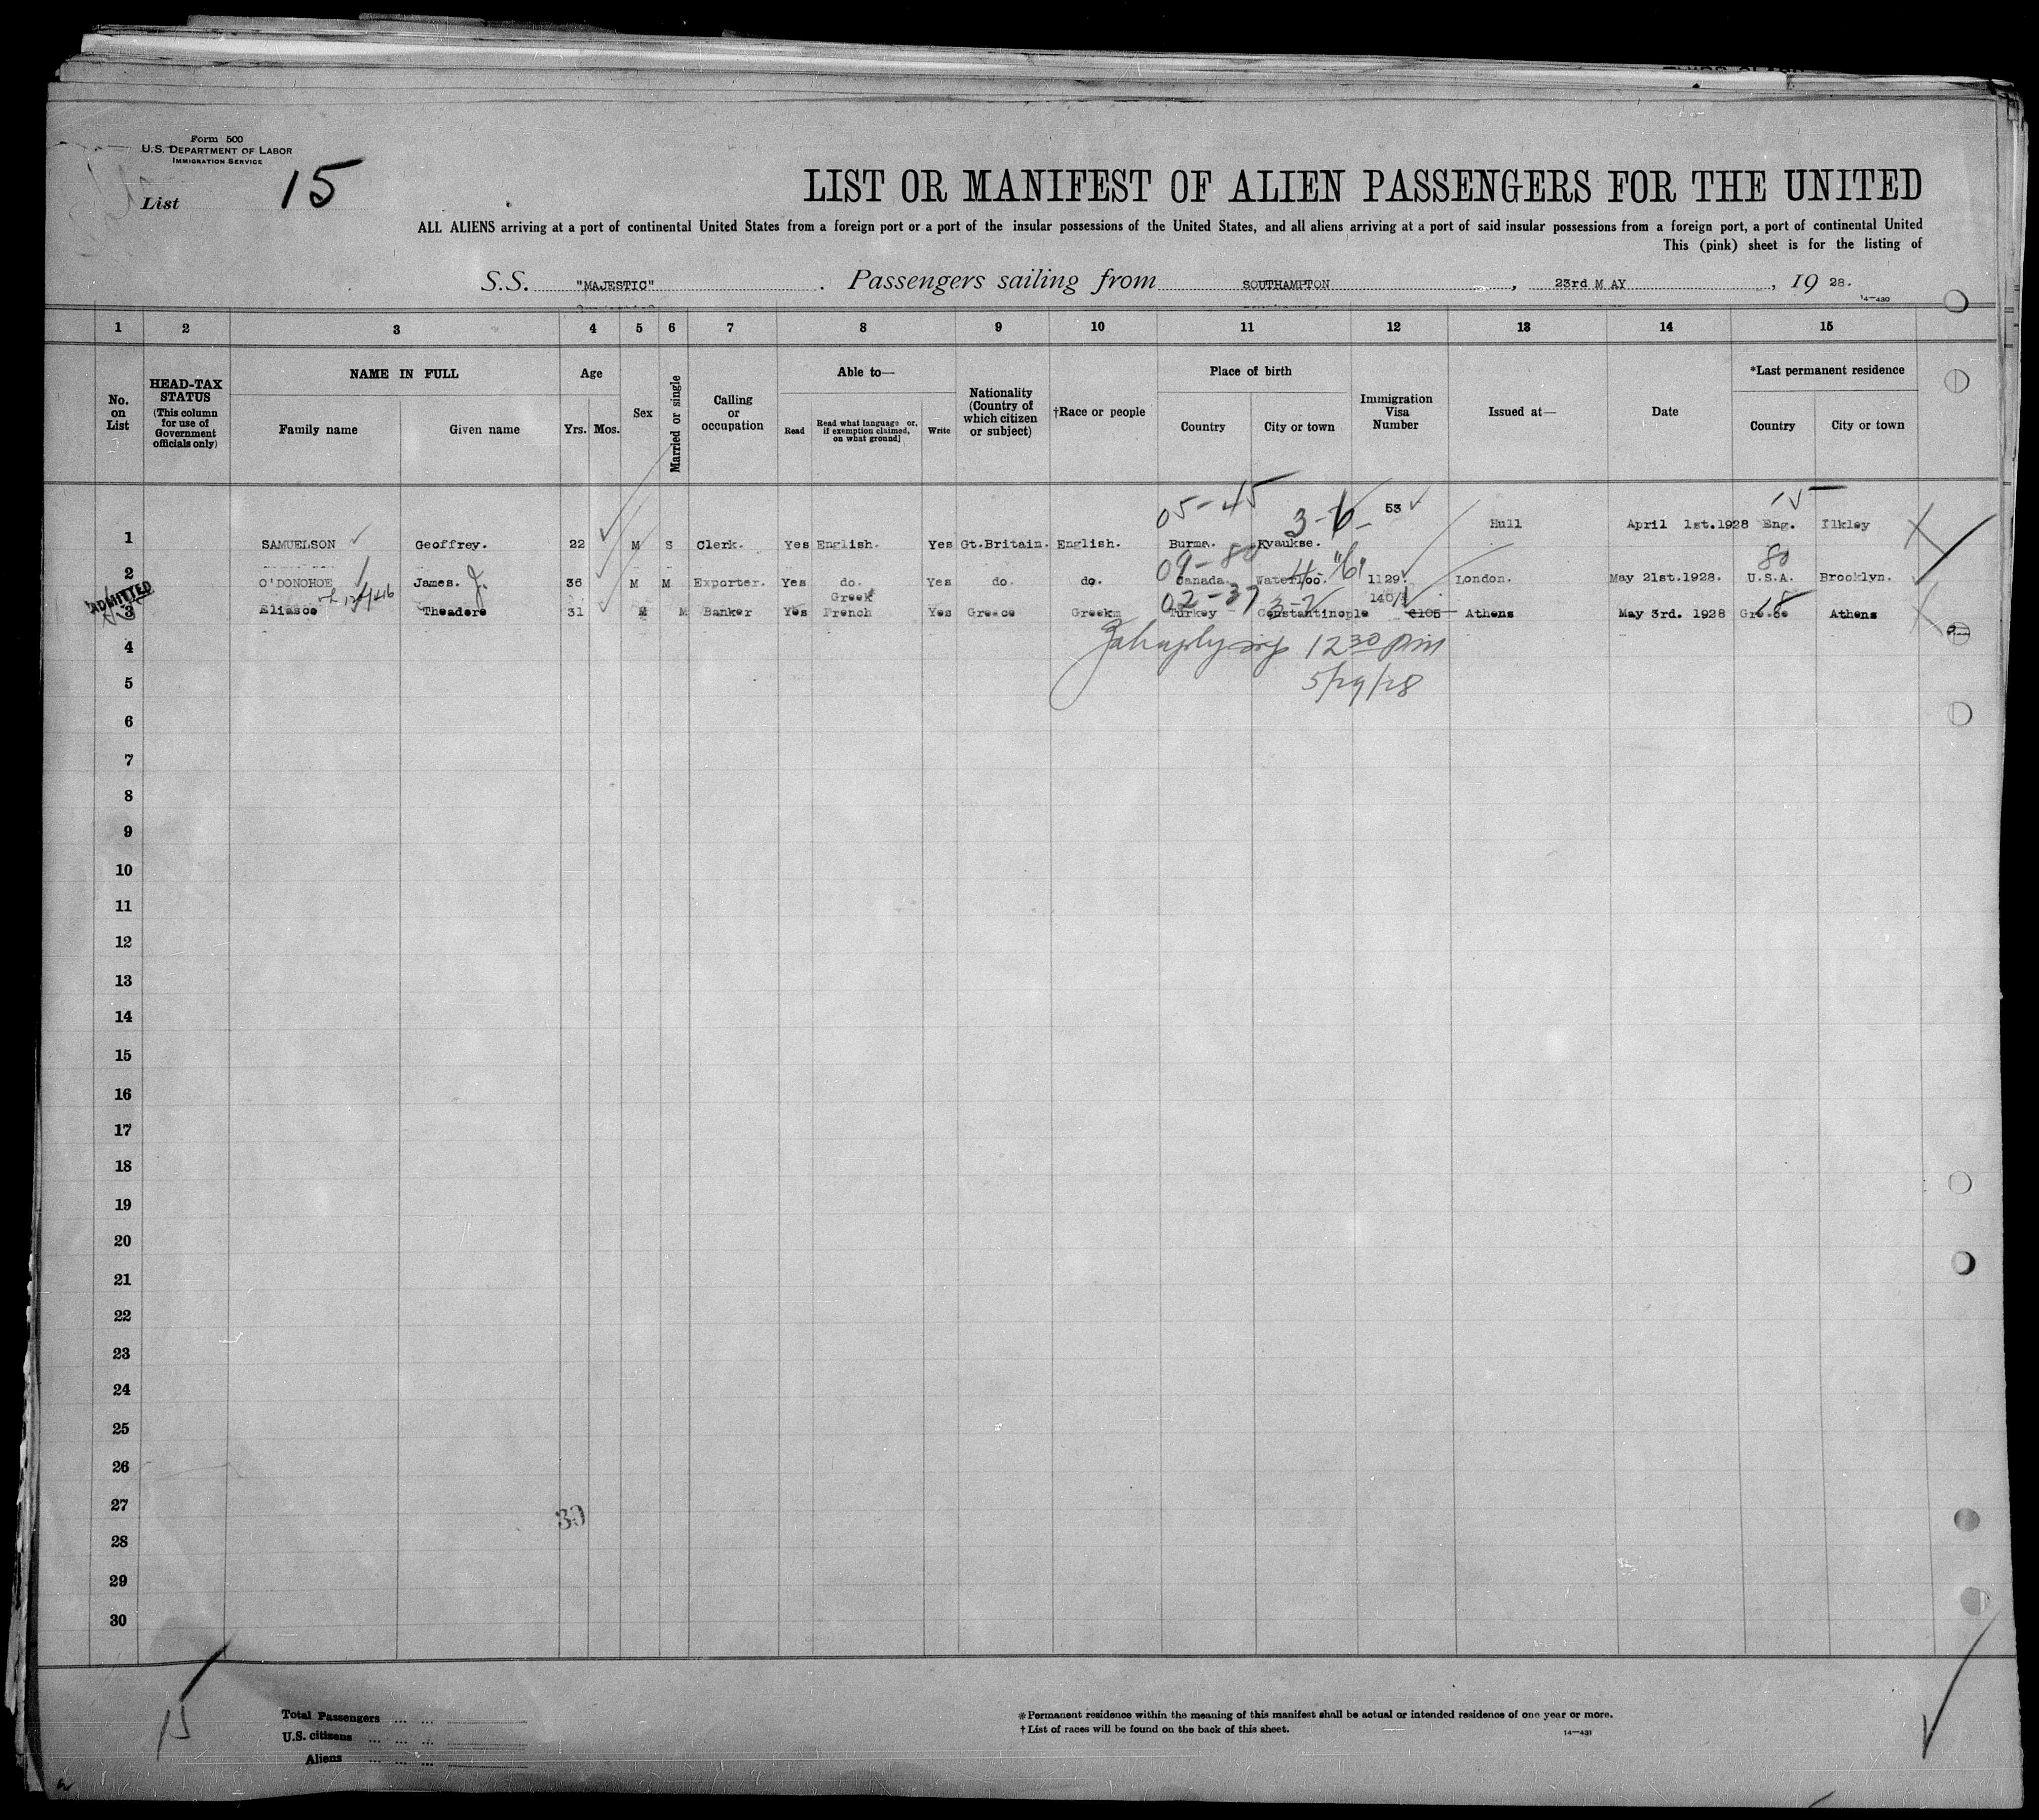 Form 500
U.S. DEPARTMENT OF LABOR
IMMIGRATION SERVICE
List 15
LIST OR MANIFEST OF ALIEN PASSENGERS FOR THE UNITED
ALL ALIENS arriving at a port of continental United States from a foreign port or a port of the insular possessions of the United States, and all aliens arriving at a port of said insular possessions from a foreign port, a port of continental United
This (pink) sheet is for the listing of
S.S. "MAJESTIC" . Passengers sailing from SOUTHAMPTON , 23rd M AY , 19 28.
14—430
1 2 3 4 5 6 7 8 9 10 11 12 13 14 15
No. on List
HEAD-TAX STATUS
(This column for use of Government officials only)
NAME IN FULL
Family name
Given name
Age
Yrs. Mos.
Sex
Married or single
Calling or occupation
Able to—
Read
Read what language or, if exemption claimed, on what ground
Write
Nationality (Country of which citizen or subject)
†Race or people
Place of birth
Country
City or town
Immigration Visa Number
Issued at—
Date
*Last permanent residence
Country
City or town
05-45 3-6 15
1 SAMUELSON Geoffrey. 22 M S Clerk. Yes English. Yes Gt.Britain. English. Burma. Kyaukse. 53 Hull April 1st.1928 Eng. Ilkley
09-80 4 "6" 80
2 O'DONOHOE James. J. 36 M M Exporter. Yes do. Yes do. do. Canada. Waterloo. 1129. London. May 21st.1928. U.S.A. Brooklyn.
ADMITTED
02-37 3-2 15
3 Eliasco Theadore 31 M M Banker Yes Greek French Yes Greece Greekm Turkey Constantinople 2105 Athens May 3rd. 1928 Greece Athens
12 30 pm
5/29/28
4
5
6
7
8
9
10
11
12
13
14
15
16
17
18
19
20
21
22
23
24
25
26
27
28
29
30
30
15
Total Passengers ... ...
U.S. citizens ... ... ...
Aliens ... ... ...
*Permanent residence within the meaning of this manifest shall be actual or intended residence of one year or more.
†List of races will be found on the back of this sheet.
14—431